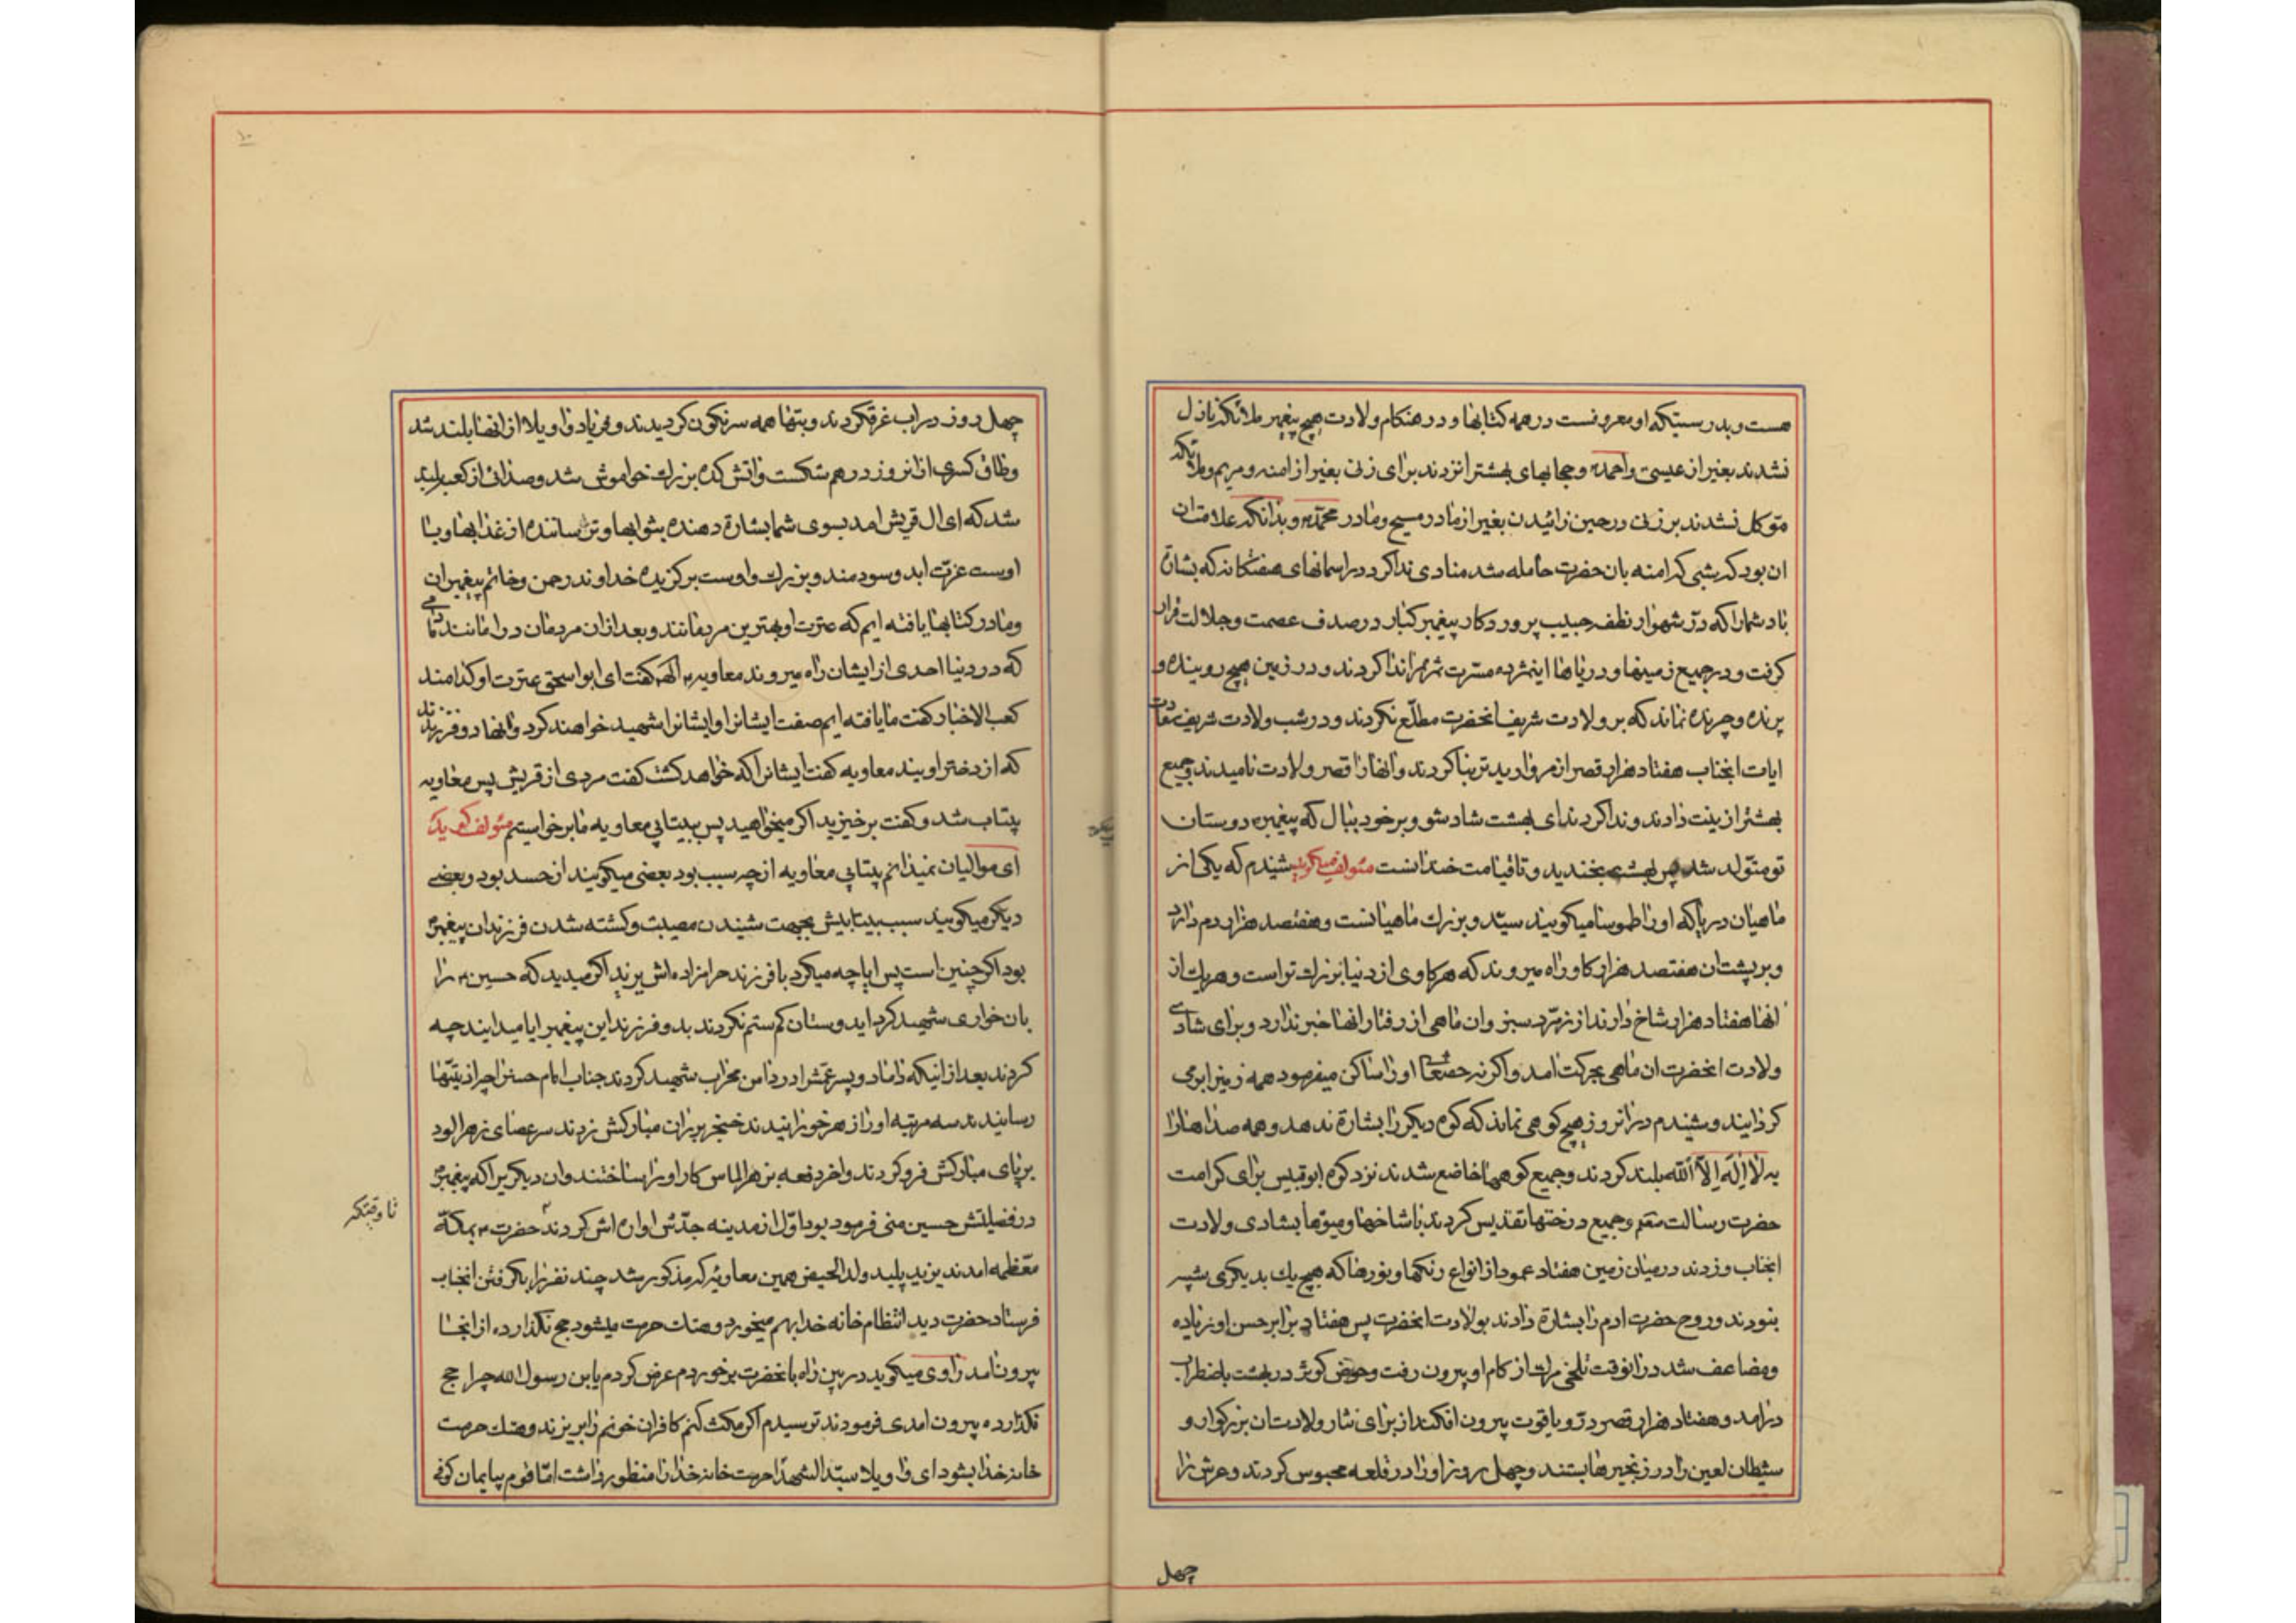 هست و بدرستیکه او معروفست در همه کتابها و در هنکام ولادت هیچ پیغمبر ملائکه نازل
نشدند بغیر از عیسی و احمد و حجابهای بهشترا نزدند برای زنی بغیر از امنه و مریم و ملائکه
موکل نشدند بر زنی در حین زائیدن بغیر از مادر مسیح و مادر محمد و بدانکه علامتان
ان بود که شبی که امنه بان حضرت حامله شد منادی ندا کرد در اسمانهای هفتکانه که بشارة
باد شما را که در شهوار نطفه حبیب پروردکار پیغمبر کبار در صدف عصمت و جلالت قرار
کرفت و در جمیع زمینها و دریاها اینمژده مسرت ثمر را ندا کردند و در زمین هیچ روینده و
پرنده و چرنده نماند که بر ولادت شریف انحضرت مطلع نکردند و در شب ولادت شریف سعادت
ایات انجناب هفتاد هزار قصر از مروارید تر بنا کردند و انها را قصر ولادت نامیدند و جمیع
بهشترا زینت دادند و ندا کردند ای بهشت شاد شو و بر خود ببال که پیغمبر دوستان
تو متولد شد پس بهشت بخندید و تا قیامت خندانست مئولف میکوید شنیدم که یکی از
ماهیان دریا که او را طموسا میکویند سید و بزرك ماهیانست و هفتصد هزار دم دارد
و بر پشت ان هفتصد هزار کاو راه میروند که هر کاوی از دنیا بزرك تر است و هر یك از
انها هفتاد هزار شاخ دارند از زمرد سبز و ان ماهی از رفتار انها خبر ندارد و برای شادی
ولادت انحضرت ان ماهی بحرکت امد و اکر نه حقتعالی او را ساکن میفرمود همه زمین را بر می
کردانید و شنیدم در انروز هیچ کوهی نماند که کوه دیکر را بشارة ندهد و همه صداها را
به لا اله الا الله بلند کردند و جمیع کوهها خاضع شدند نزد کوه ابو قبیس برای کرامت
حضرت رسالت و جمیع درختها تقدیس کردند با شاخها و میوها بشادی ولادت
انجناب و زدند در میان زمین هفتاد عمود از انواع رنکها و نورها که هیچ یك بدیکری شبیه
نبودند و روح حضرت ادم را بشارة دادند بولادت انحضرت پس هفتاد برابر حسن او زیاده
و مضاعف شد در انوقت تلخی مرك از کام او بیرون رفت و حوض کوثر در بهشت باضطراب
درامد و هفتاد هزار قصر در و یاقوت بیرون افکند از برای نثار ولادت ان بزرکوار و
شیطان لعین را در زنجیرها بستند و چهل روز او را در قلعه محبوس کردند و عرش را
چهل
چهل روز در اب غرق کردند و بتها همه سرنکون کردیدند و فریاد واویلا از انها بلند شد
و طاق کسری از انروز در هم شکست و اتش کده بزرك خواموش شد و صدائی از کعبه بلند
شد که ای ال قریش امد بسوی شما بشارة دهنده بثوابها و ترساننده از عذابها و با
اوست عزت ابد و سودمند و بزرك و اوست برکزیده خداوند رحمن و خاتم پیغمبران
و ما در کتابها یافته ایم که عترت او بهترین مردمانند و بعد از ان مردمان در امانند مادامی
که در دنیا احدی از ایشان راه میروند معاویه کفت ای ابو اسحق عترت او کدامند
کعب الاخبار کفت ما یافته ایم صفت ایشانرا و ایشانرا شهید خواهند کرد و انها دو فرزندند
که از دختر اویند معاویه کفت ایشانرا که خواهد کشت کفت مردی از قریش پس معاویه
بیتاب شد و کفت برخیزید اکر میخواهید پس بیتابی معاویه ما برخواستیم مئولف کوید که
ای موالیان نمیدانم بیتابی معاویه از چه سبب بود بعضی میکویند از حسد بود و بعضی
دیکر میکویند سبب بیتابیش بجهت شنیدن مصیبت و کشته شدن فرزندان پیغمبر
بود اکر چنین است پس ایا چه میکرد با فرزند حرامزاده اش یزید اکر میدید که حسین را
بان خواری شهید کرد ایدوستان کم ستم نکردند بدو فرزند این پیغمبر ایا میدانید چه
کردند بعد از انیکه داماد و پسر عمش را در دامن محراب شهید کردند جناب امام حسن را چه اذیتها
رسانیدند سه مرتبه او را زهر خورانیدند خنجر بر ران مبارکش زدند سر عصای زهر الود
بر پای مبارکش فرو کردند و اخر دفعه بزهر الماس کار او را ساختند و ان دیکریرا که پیغمبر
در فضیلتش حسین منی فرمود بود اول از مدینه جدش اواره اش کردند حضرت بمکه
تا وقتیکه
معظمه امدند یزید پلید ولد الحیض همین معاویه که مذکور شد چند نفر را بکرفتن انجناب
فرستاد حضرت دید انتظام خانه خدا بهم میخورد و هتك حرمت میشود حج نکذارده از انجا
بیرون امد راوی میکوید در بین راه بانحضرت برخوردم عرض کردم یابن رسول الله چرا حج
نکذارده بیرون امدی فرمودند ترسیدم اکر مکث کنم کافران خونم را بریزند و هتك حرمت
خانه خدا بشود ای واویلا سید الشهدا حرمت خانه خدا را منظور داشت اما قوم بیایمان کوفه